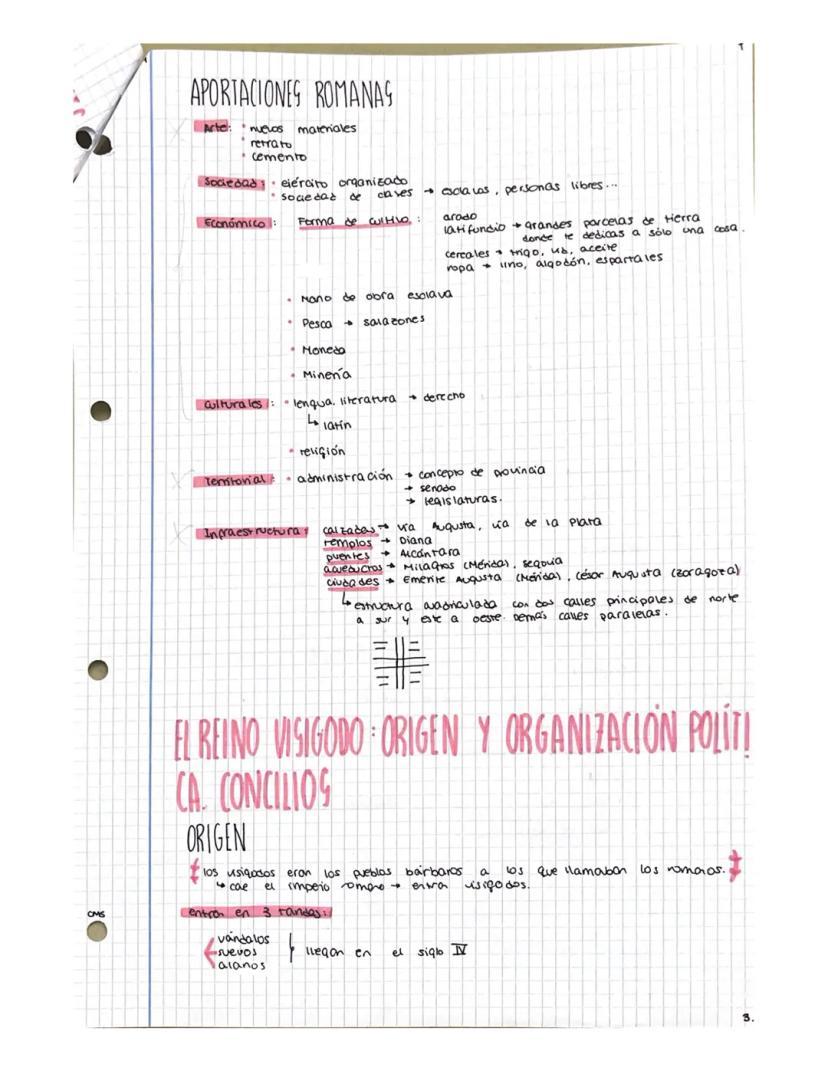 APORTACIONES ROMANAS
Arte: • nuevos materiales
• retrato
• cemento
Sociedad: • ejército organizado
• sociedad de clases → esclavos, personas libres...
Económico: Forma de cultivo: arado
latifundio → grandes parcelas de tierra
donde te dedicas a sólo una cosa.
cereales → trigo, vid, aceite
ropa → lino, algodón, espartales
• Mano de obra esclava
• Pesca → salazones
• Moneda
• Minería
Culturales: • lengua, literatura → derecho
↳ latín
• religión
Territorial: • administración → concepto de provincia
→ senado
→ legislaturas.
Infraestructura: calzadas → vía Augusta, vía de la Plata
templos → Diana
puentes → Alcántara
acueductos → Milagros (Mérida), segovia
ciudades → Emerite Augusta (Mérida), césar Augusta (zaragoza)
↳ estructura cuadriculada con dos calles principales de norte
a sur y este a oeste. Demás calles paralelas.
EL REINO VISIGODO: ORIGEN Y ORGANIZACIÓN POLÍTI
CA. CONCILIOS
ORIGEN
los visigodos eran los pueblos bárbaros a los que llamaban los romanos.
↳ cae el imperio romano → entra visigodos.
entran en 3 tandas:
vándalos
suevos
alanos
llegan en el siglo IV
CMS
3.